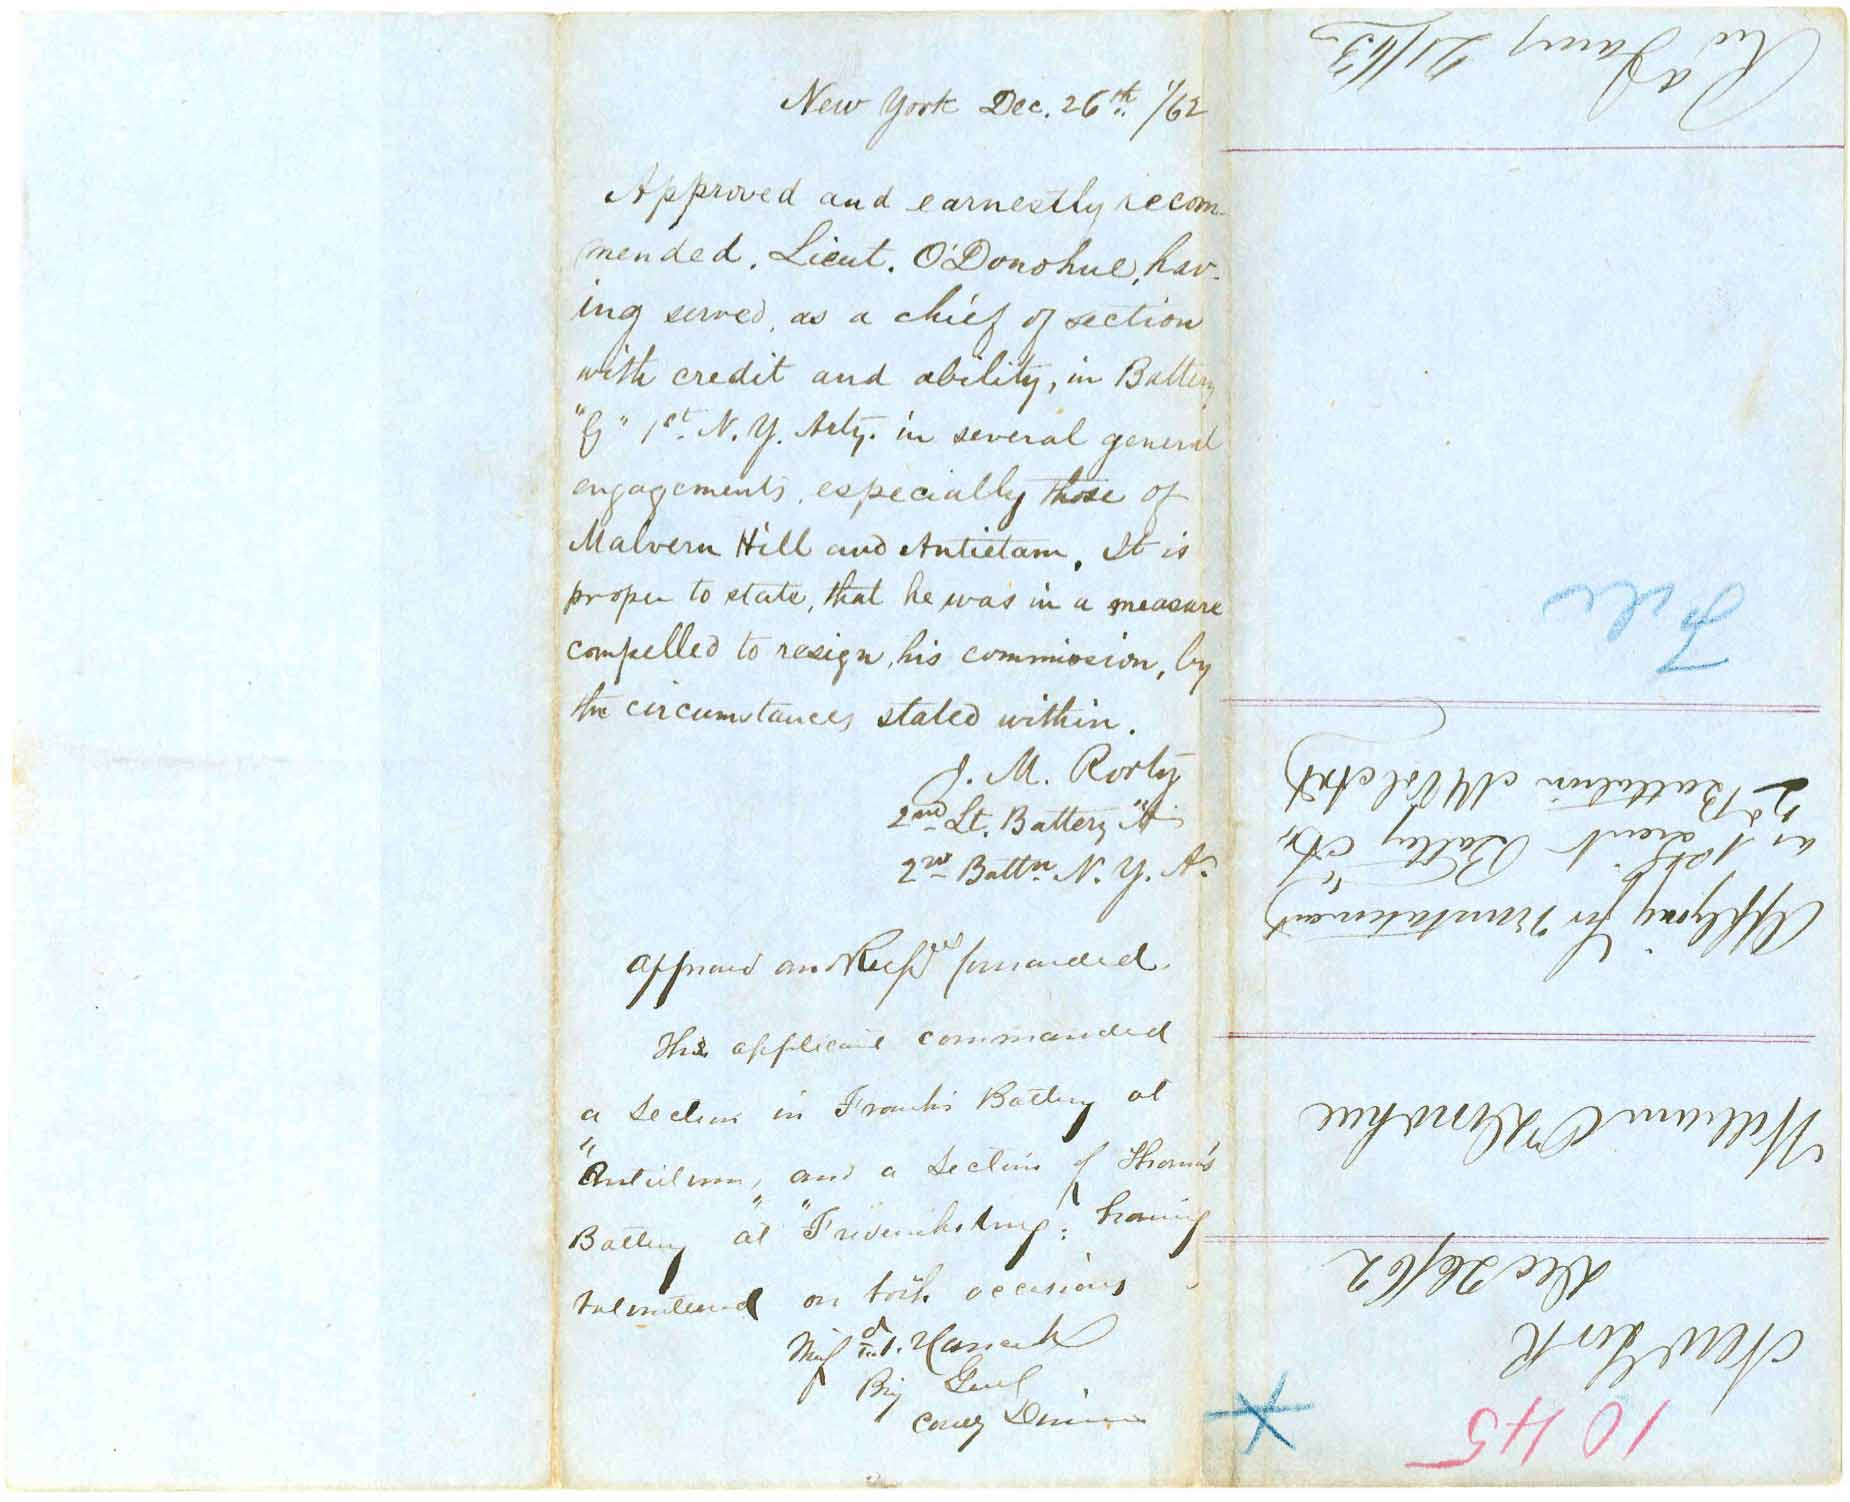 New York Dec. 26th. /62
Approved and earnestly recom-
mended. Lieut. O'Donohue, hav-
ing served, as a chief of section
with credit and ability, in Battery
"G" 1st. N. Y. Arty. in several general
engagements, especially those of
Malvern Hill and Antietam. It is
proper to state, that he was in a measure
compelled to resign, his commission, by
the circumstances stated within.
J. M. Rorty
2nd Lt. Battery "A"
2nd Battn N. Y. A.
Approved and Respy forwarded.
The applicant commanded
a Section in Frank's Battery at
"Antietam, and a Section of Thomas
Battery" at "Fredericksburg: having
volunteered on both occasions
Winfd. Hancock
Brig Genl
Comdg Division
1045
New York
Dec 26/62
William O'Donohue
Applying for
as 1st Lieut Battery "A"
2d Battalion NY Vol Art
File
Rec Jany 21/63